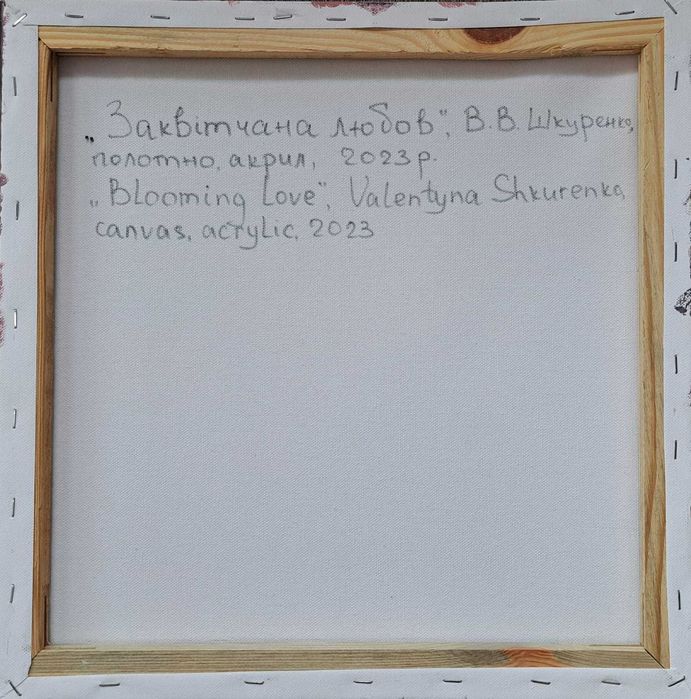 „Заквітчана любов", В.В. Шкуренко,
полотно, акрил, 2023р.
„Blooming Love", Valentyna Shkurenko,
canvas, acrylic, 2023